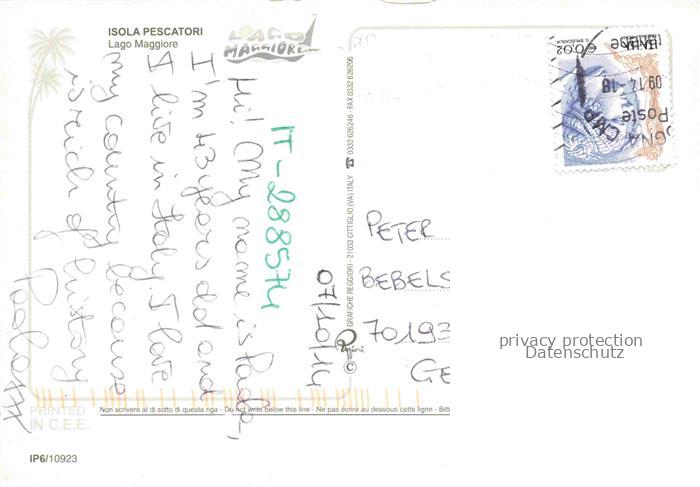 ISOLA PESCATORI
Lago Maggiore
LAGO
MAGGIORE
IT-288574
07/10/14
Hi! My name is Paola,
I'm 43 years old and
I live in Italy. I love
my country because
is rich of history
Paola xxx
© GRAFICHE REGGIORI - 21033 CITTIGLIO (VA) ITALY ☎ 0332 626246 - FAX 0332 626206
€0,02
09.14-18
Poste
CMP
PETER
BEBELS
70193
GE
privacy protection
Datenschutz
PRINTED
IN C.E.E.
Non scrivere al di sotto di questa riga - Do not write below this line - Ne pas écrire au dessous cette ligne - Bitt
IP6/10923